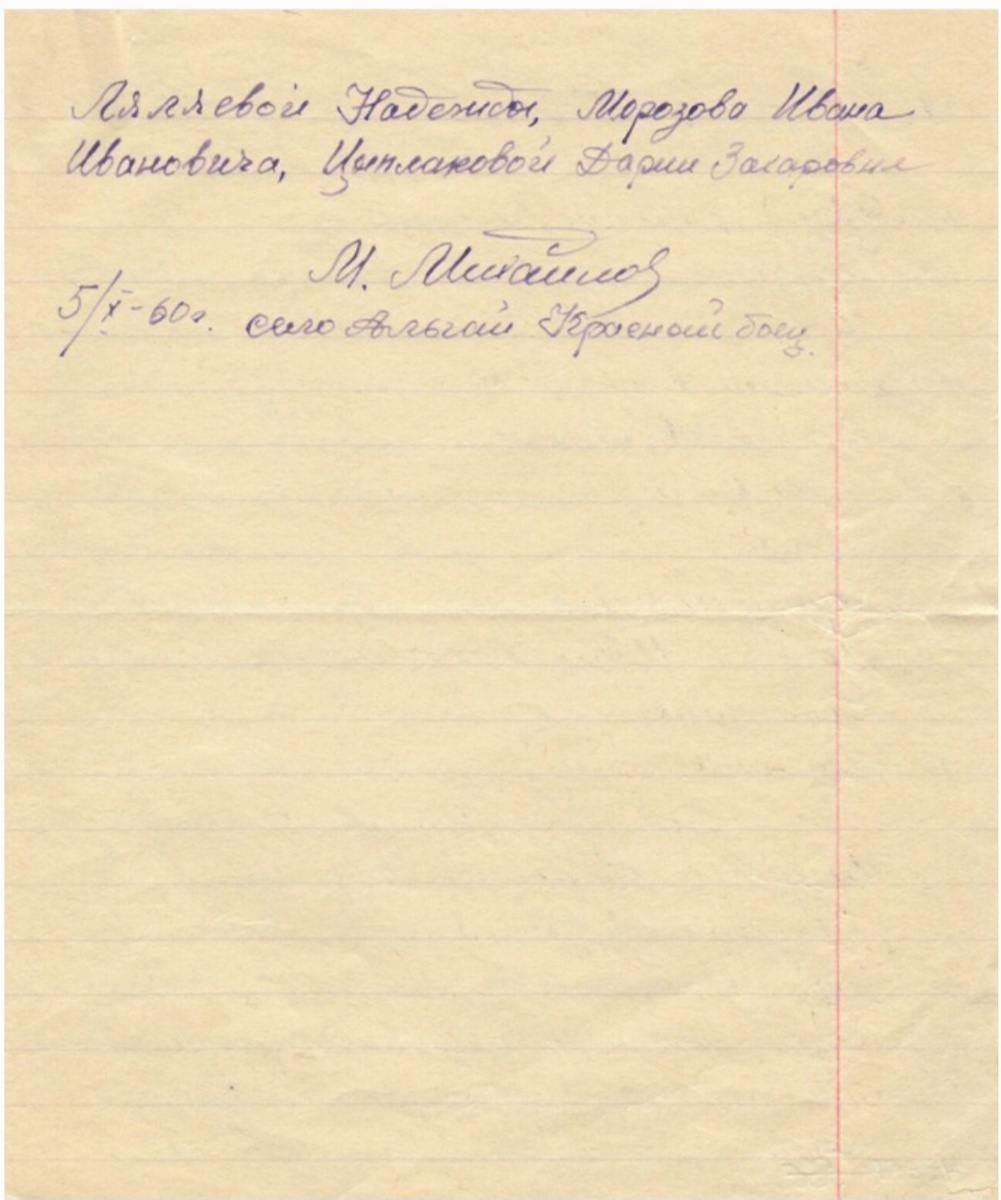 Ляляевой Надежды, Морозова Ивана
Ивановича, Цыплаковой Дарии Захаровны
М. Михайлов
5/X-60г. село Альгай Красный боец.